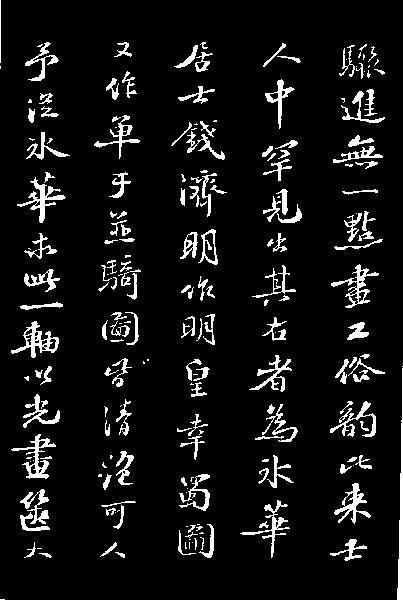 驟進無一點畫工俗韵比来士
人中罕見出其右者為氷華
居士錢濟明作明皇幸蜀圖
又作單于並騎圖皆清可人
予從氷華求此一軸以光畫篋大